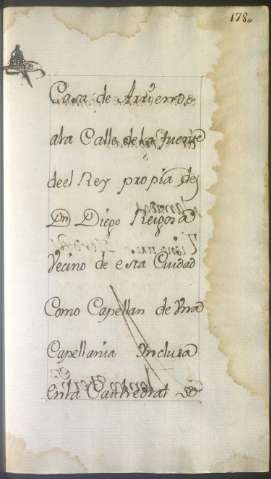 178.
Casa de Arriendo
ala Calle de la fuente
deel Rey propia de
Dn Diego Reigosa
Vecino de esta Ciudad
Como Capellan de Una
Capellania Inclusa
en la Cathedral